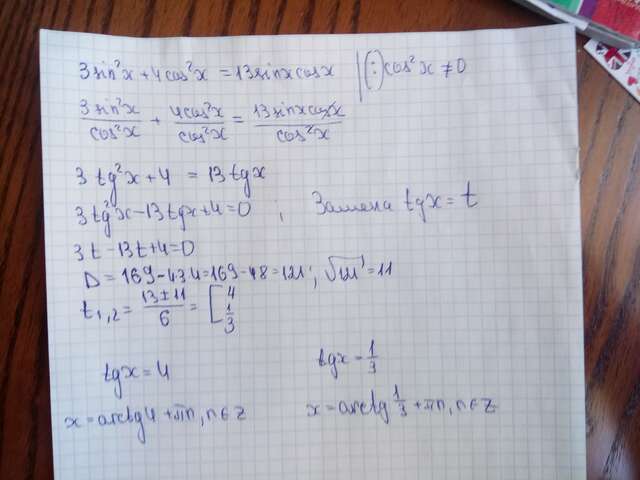 3sin²x + 4cos²x = 13sinx cosx |(:) cos²x ≠ 0
3sin²x/cos²x + 4cos²x/cos²x = 13sinx cosx/cos²x
3tg²x + 4 = 13tgx
3tg²x - 13tgx + 4 = 0; Замена tgx = t
3t - 13t + 4 = 0
D = 169 - 4·3·4 = 169 - 48 = 121; √121 = 11
t₁,₂ = 13 ± 11/6 = [4 1/3
tgx = 4 tgx = 1/3
x = arctg4 + πn, n∈z x = arctg 1/3 + πn, n∈z